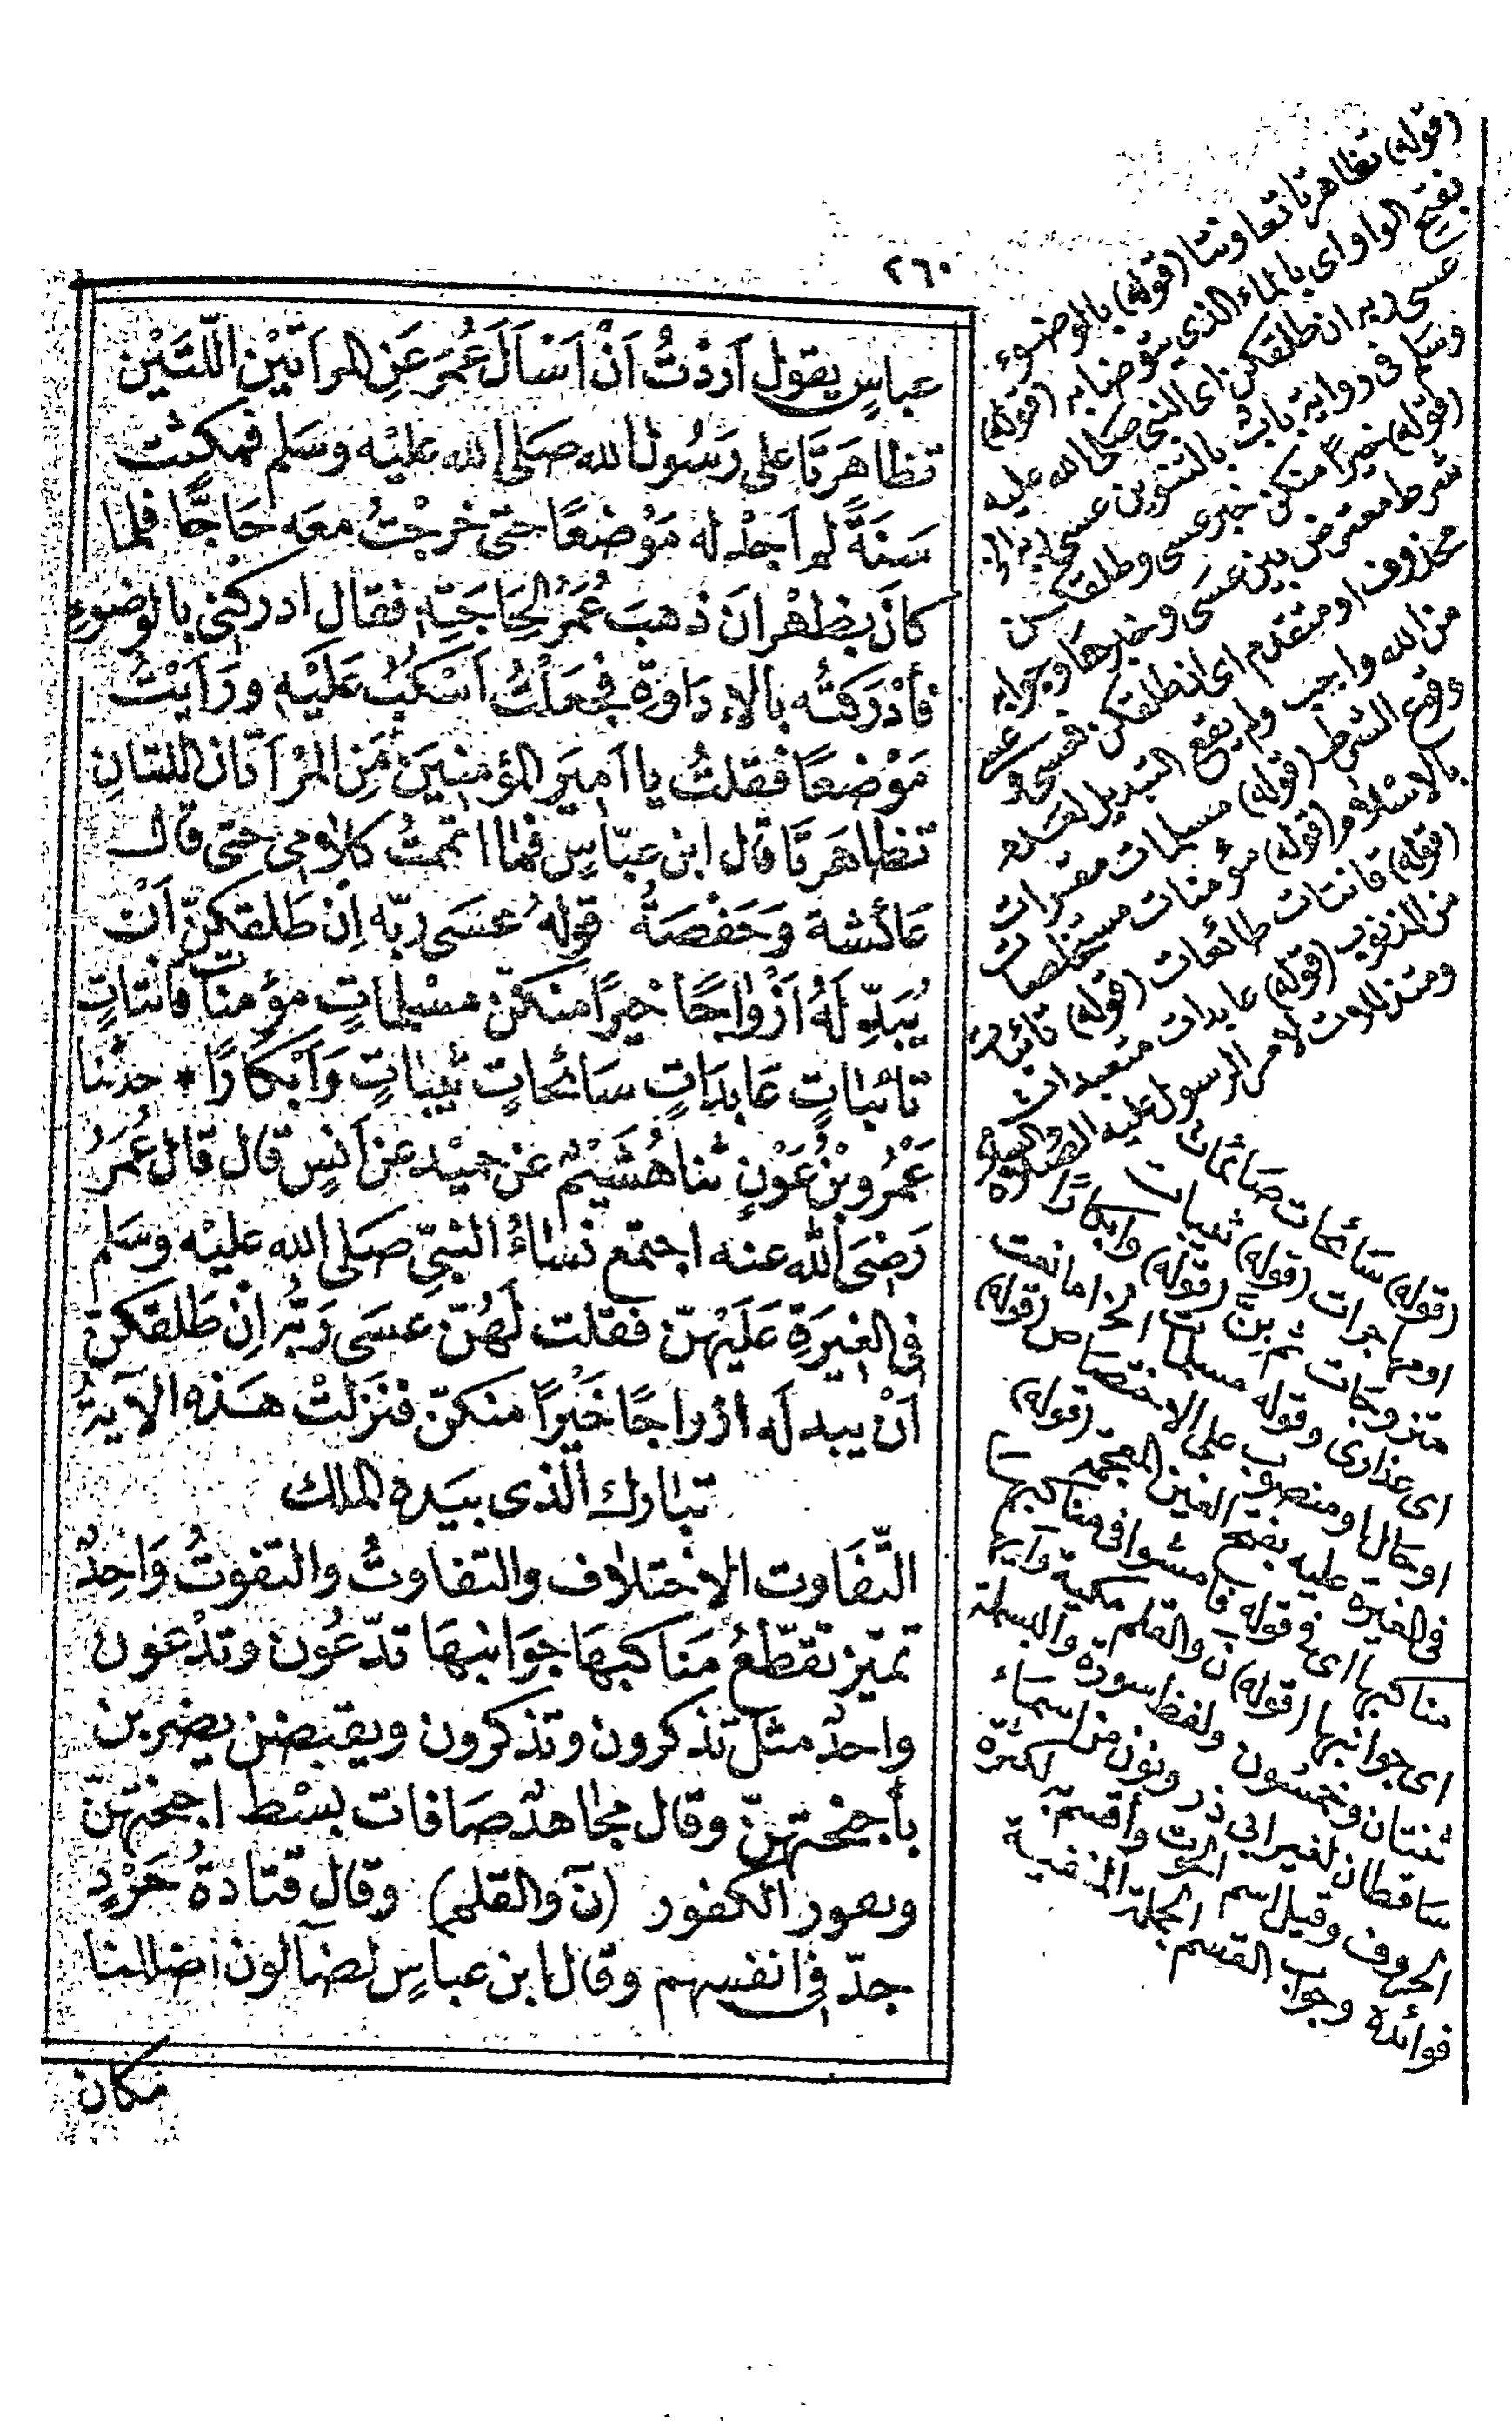 ٢٦٠
عباسٍ يقول أَرَدْتُ اَنْ اَسْاَلَ عُمَرَ عَنِ المرَاَتَيْنِ اللَّتَيْنِ
تظاهَرَتَا على رَسُول الله صَلى الله عليْه وسَلم فمكثت
سَنَةً لم اَجِدْ له مَوْضعًا حتى خرجْتُ معَه حَاجًّا فلما
كانَ بظهْرانَ ذهبَ عُمَرُ لِحَاجَتِهِ فقال ادركنى بالوَضوءِ
فأدْرَكتُه بالاِدَاوَةِ فجَعَلْتُ اَسْكبُ عَلَيْهِ ورَاَيْتُ
مَوْضعًا فقلتُ يا اَمِيَر المؤمنِينَ مَنِ المَرْاَتَان اللتانِ
تظاهَرتَا قال ابن عبّاسٍ فما اتممتُ كلامى حتى قال
عَائشة وَحَفْصَةُ قوله عسَى ربّه اِن طَلقكنّ اَنْ
يُبَدِّلَهُ اَزْوَاجًا خيرًا منكنّ مسْلماتٍ مؤمناتٍ قانتاتٍ
تائباتٍ عَابدَاتٍ سَائحاتٍ ثيّباتٍ وَاَبْكارًا * حدثنا
عَمْرُو بْنُ عَوْنٍ ثنا هُشَيْمٌ عن حميْد عن اَنسٍ قال قال عُمَرُ
رَضىَ الله عنه اجتمع نسَاءُ النبيّ صَلى الله عليْه وسَلم
فى الغيرَةِ عَلَيْهِنّ فقلت لَهُنّ عسَى رَبُّه اِنْ طَلقكنّ
اَنْ يبدلَه ازواجًا خَيْرًا منكنّ فنزلتْ هَذه الآية
تبارك الذى بيَده الملك
التَّفَاوت الاختلاف والتفاوتُ والتفوّتُ وَاحِدٌ
تميّز تقطّعُ مَنَاكبهَا جَوَانبهَا تدّعُون وتدْعون
واحدٌ مثل تذكرون وتذكرون ويقبضن يضربن
بأجنحتهنّ وقال مجاهدٌ صَافات بسْط اجنحتهنّ
ونفور الكفور (نَ والقلم) وقال قتادَةُ حَرْدٍ
جدّ فى انفسهم وقال ابن عباسٍ لضآلون اضللنا
مكان
(قوله) تظاهرتا تعاونتا (قوله) بالوضوء
بفتح الواو اى بالماء الذي يتوضا به (قوله)
عسى ربه ان طلقكن اى النبى صلى الله عليه
وسلم فى رواية باب بالتنوين عسى ربه الخ
(قوله) خيرًا منكن خبر عسى وطلقكن
شرط معترض بين عسى وخبرها وجوابه
محذوف او متقدم اى ان طلقكن فعسى وعسى
من الله واجب ولم يقع التبديل لعدم
وقوع الشرط (قوله) مسلمات مقرات
بالاسلام (قوله) مؤمنات مخلصات
(قوله) قانتات طائعات (قوله) تائبات
من الذنوب (قوله) عابدات متعبدات
ومتذللات لامر الرسول عليه الصلاة والسلام
(قوله) سَائحات صَائمات
او مهاجرات (قوله) ثيبات
متزوجات ثم بِنَّ (قوله) وابكارًا
اى عذارى وقوله مسلمات الخ اما نعت
او حال او منصوب على الاختصاص (قوله)
فى الغيرة عليه بفتح الغين المعجمة (قوله)
مناكبها اى فى قوله فامشوا فى مناكبها
اى جوانبها (قوله) نَ والقلم مكية وآيها
ثنتان وخمسون ولفظ سورة والبسملة
ساقطان لغير ابى ذر ونون من اسماء
الحروف وقيل اسم الحوت واقسم به لكثرة
فوائده وجواب القسم الجملة المنفية